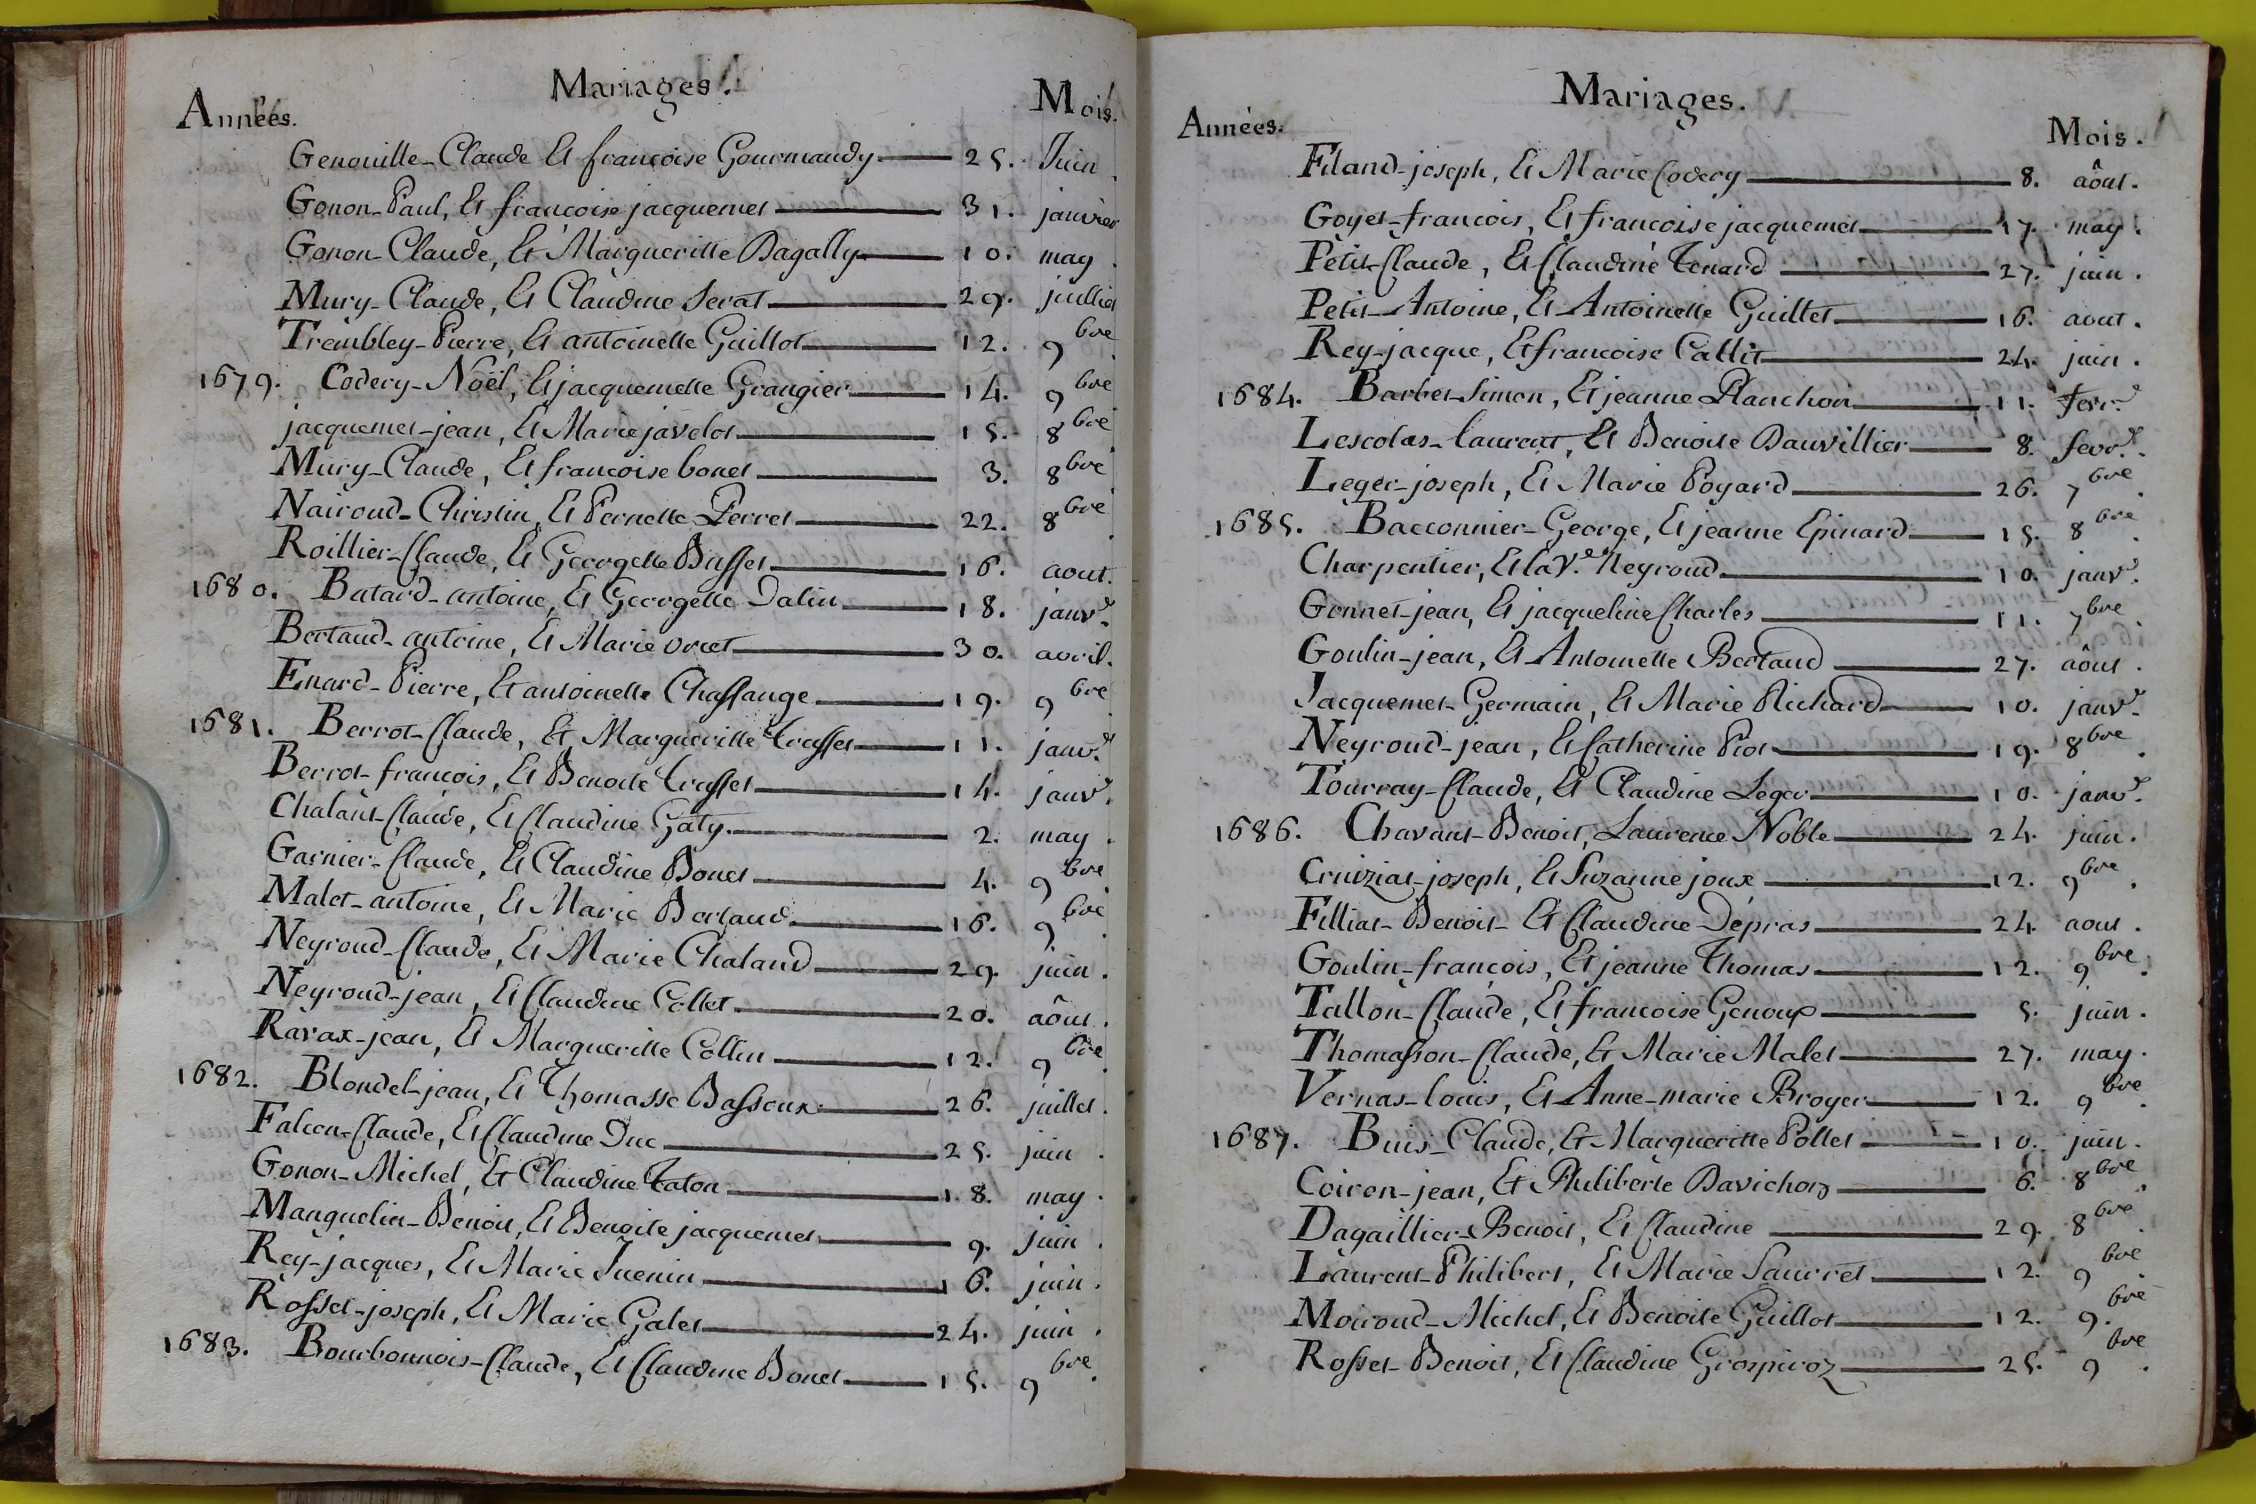 Mariages.
Années. Mois.
Genouille-Claude Et françoise Gourmandy 25. Juin.
Gonon-Paul, Et françoise jacquemet 31. janvier
Gonon-Claude, Et Margueritte Dagally 10. may.
Mury-Claude, Et Claudine Serat 29. juillet
Trembley-Pierre, Et antoinette Guillot 12. 9bre.
1679. Codery-Noël, Et jacquemette Grangier 14. 9bre
jacquemet-jean, Et Marie javelot 15. 8bre
Mury-Claude, Et françoise bonet 3. 8bre
Nairoud-Christin, Et Pernette Perret 22. 8bre.
Roillier-Claude, Et Georgette Buffet 16. aout.
1680. Batard-antoine, Et Georgette Dalin 18. janvr.
Bertaud-antoine, Et Marie orcet 30. avril.
Enard-Pierre, Et antoinette Chassange 19. 9bre.
1681. Berrot-Claude, Et Margueritte Truffet 11. janvr.
Berrot-françois, Et Benoite Truffet 14. janvr.
Chalant-Claude, Et Claudine Gaty. 2. may.
Garnier-Claude, Et Claudine Bonet 4. 9bre
Malet-antoine, Et Marie Bertaud. 16. 9bre.
Neyroud-Claude, Et Marie Chaland 29. juin.
Neyroud-jean, Et Claudine Collet 20. âout.
Ravax-jean, Et Margueritte Collin 12. 9bre.
1682. Blondel-jean, Et Thomasse Bassoux 26. juillet.
Falcon-Claude, Et Claudine Duc 25. juin.
Gonon-Michel, Et Claudine Taton 18. may.
Manguelin-Benoit, Et Benoite jacquemet 9. juin.
Rey-jacques, Et Marie Juenin 16. juin.
Rosset-joseph, Et Marie Galet 24. juin.
1683. Bourbonnois-Claude, Et Claudine Bonet 15. 9bre.
Mariages.
Années. Mois.
Filand-joseph, Et Marie Codery 8. âout.
Goyet-françois, Et françoise jacquemet 17. may.
Petit-Claude, Et Claudine Tenard 27. juin.
Petit-Antoine, Et Antoinette Guillet 16. aout.
Rey-jacque, Et françoise Callit 24. juin.
1684. Barbet-Simon, Et jeanne Planchon 11. fevr.
Lescolas-laurent, Et Benoite Dauvillier 8. fevr.
Leger-joseph, Et Marie Poyard 26. 7bre.
1685. Bacconnier-George, Et jeanne Epinard 15. 8bre.
Charpentier, Et la Ve. Neyroud 10. janvr.
Gonnet-jean, Et jacqueline Charles 11. 7bre.
Goulin-jean, Et Antoinette Bertaud 27. âout.
Jacquemet-Germain, Et Marie Richard 10. janvr.
Neyroud-jean, Et Catherine Piot 19. 8bre.
Tourray-Claude, Et Claudine Leger 10. janvr.
1686. Chavant-Benoit, Laurence Noble 24. juin.
Cruiziat-joseph, Et Suzanne joux 12. 9bre.
Filliat-Benoit-Et Claudine Dépras 24. aout.
Goulin-françois, Et jeanne Thomas 12. 9bre.
Tallon-Claude, Et francoise Genoux 5. juin.
Thomasson-Claude, Et Marie Malet 27. may.
Vernas-louis, Et Anne-marie Broyer 12. 9bre.
1687. Buis-Claude, Et Margueritte Pollet 10. juin.
Coiron-jean, Et Philiberte Davichon 6. 8bre.
Dagaillier-Benoit, Et Claudine 29. 8bre.
Laurent-Philibert, Et Marie Saurret 12. 9bre
Moiroud-Michel, Et Benoite Guillot 12. 9.bre
Rosset-Benoit, Et Claudine Grospiroz 25. 9bre.